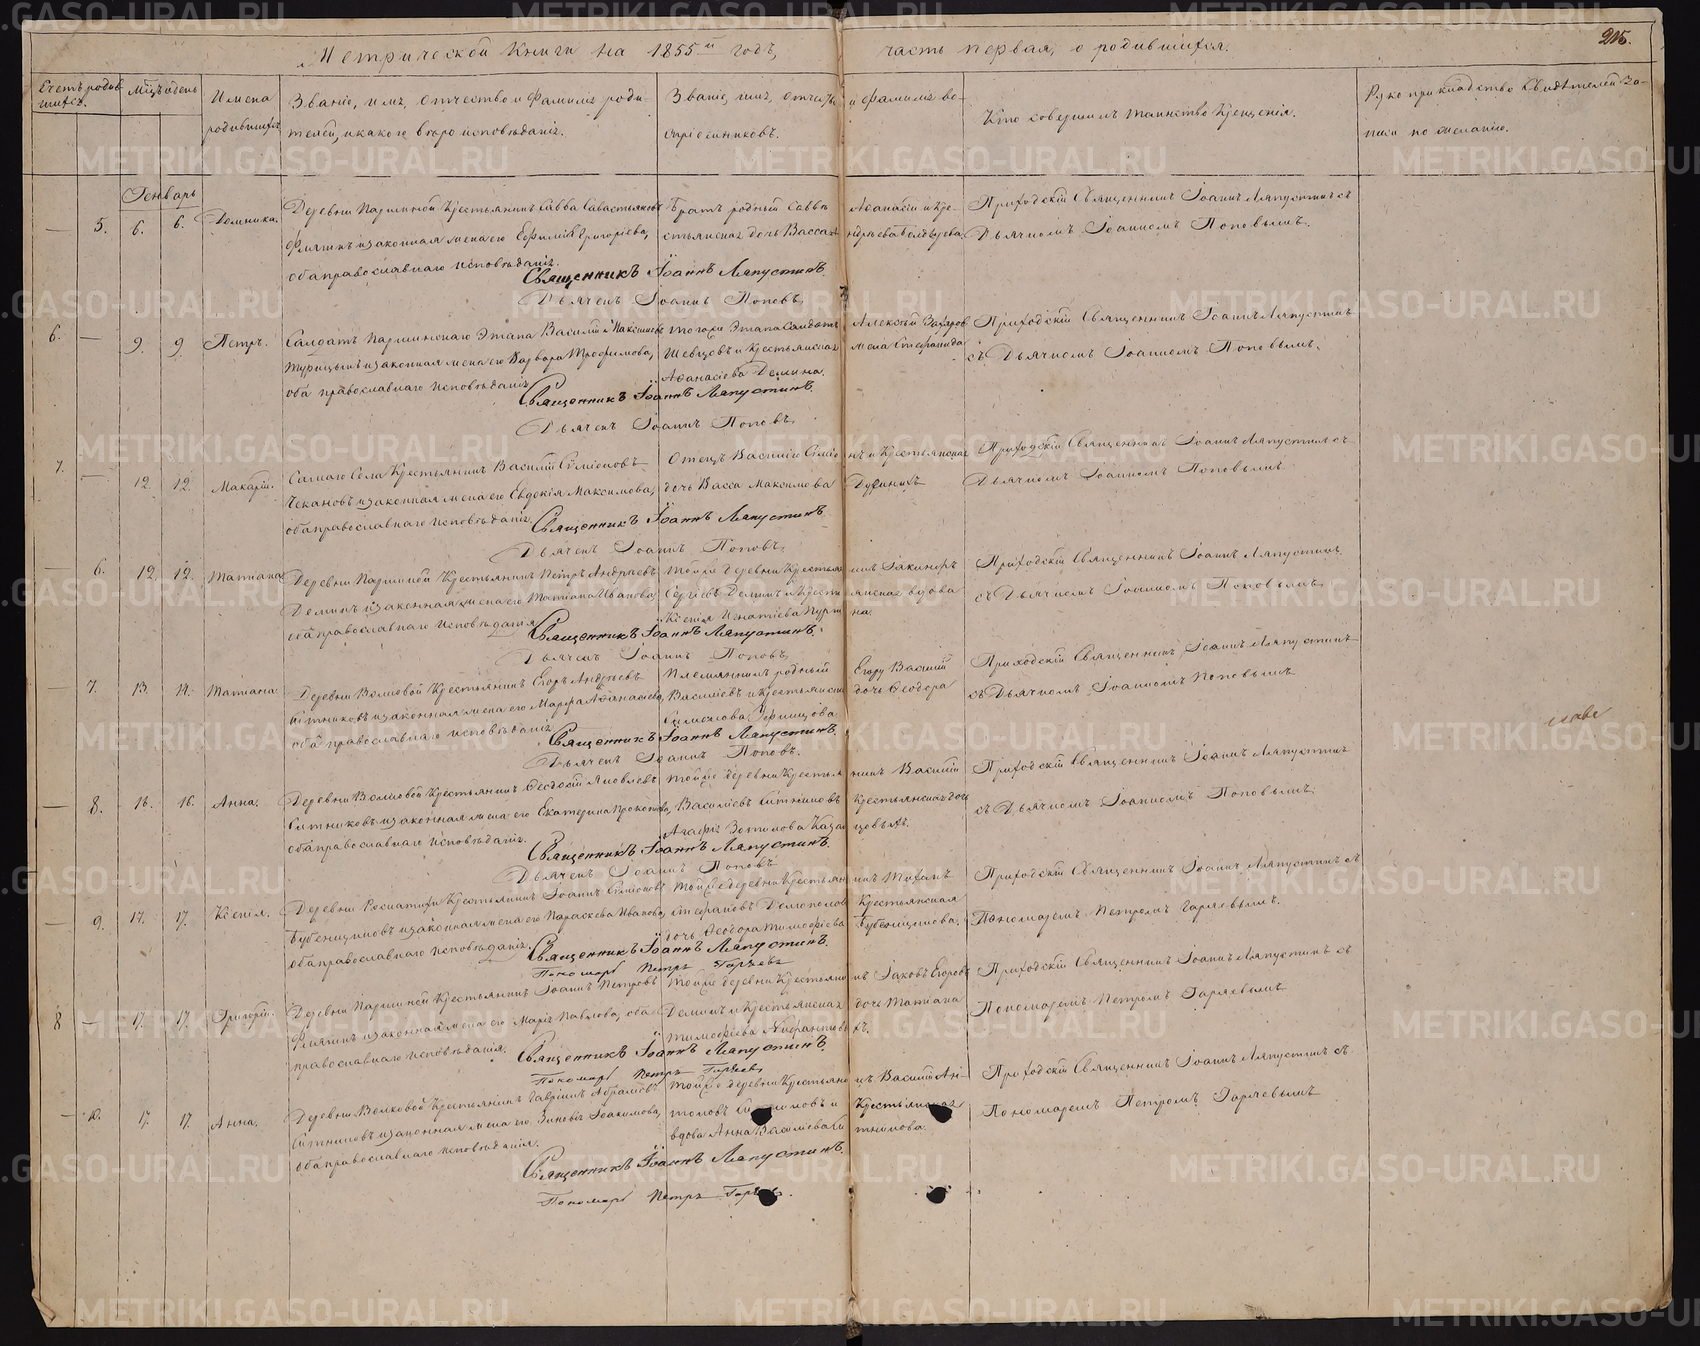 Метрической Книги на 1855й годъ,
часть первая, о родившихся.
215.
Счетъ родив
шихся.
Мѣсяцъ и день
Имена
родившихъ
Званіе, имя, отчество и фамилія роди-
телей, и какого вѣроисповѣданія.
Званіе, имя, отчество и фамилія во-
спріемниковъ.
Кто совершалъ таинство Крещенія.
Рукоприкладство Свидѣтелей За-
писи по желанію.
Генварь
5. 6. 6. Домника.
Деревни Паршиной Крестьянинъ Савва Савастьяновъ
и законная жена его Ефимія Григорьева,
оба православнаго исповѣданія.
Братъ родный Саввы Афанасій и Кре-
стьянская дочь Васса
Приходскій Священникъ Іоаннъ Ляпустинъ съ
Дьячкомъ Іоанномъ Поповымъ.
Священникъ Іоаннъ Ляпустинъ.
Дьячекъ Іоаннъ Поповъ.
6. 9. 9. Петръ.
Солдатъ Паршинскаго Этапа Василій Максимовъ
и законная жена его Варвара Трофимова,
оба православнаго исповѣданія.
того же Этапа Солдатъ Алексѣй Захаров
Шевцовъ и Крестьянская жена Стефанида
Афанасіева Демина.
Приходскій Священникъ Іоаннъ Ляпустинъ
съ Дьячкомъ Іоанномъ Поповымъ.
Священникъ Іоаннъ Ляпустинъ.
Дьячекъ Іоаннъ Поповъ.
7. 12. 12. Макарій.
Самаго Села Крестьянинъ Василій Симіоновъ
Чекановъ и законная жена его Евдокія Максимова,
оба православнаго исповѣданія.
Отецъ Василія Симіонъ и Крестьянская
дочь Васса Максимова
Приходскій Священникъ Іоаннъ Ляпустинъ съ
Дьячкомъ Іоанномъ Поповымъ.
Священникъ Іоаннъ Ляпустинъ
Дьячекъ Іоаннъ Поповъ.
6. 12. 12. Татіана
Деревни Паршиной Крестьянинъ Петръ Андреевъ
Деминъ и законная жена его Татіана Иванова,
оба православнаго исповѣданія.
той же деревни Крестьянинъ Іакинфъ
Сергіевъ Деминъ и Крестьянская вдова
Ксенія Игнатіева
Приходскій Священникъ Іоаннъ Ляпустинъ
съ Дьячкомъ Іоанномъ Поповымъ.
Священникъ Іоаннъ Ляпустинъ.
Дьячекъ Іоаннъ Поповъ.
7. 13. 14. Татіана.
Деревни Волковой Крестьянинъ Егоръ Андреевъ
Ситниковъ и законная жена его Марфа Афанасіева,
оба православнаго исповѣданія.
Племянникъ родный Егору Василій
Василіевъ и Крестьянская дочь Феодора
Симеонова
Приходскій Священникъ Іоаннъ Ляпустинъ
съ Дьячкомъ Іоанномъ Поповымъ.
Священникъ Іоаннъ Ляпустинъ.
Дьячекъ Іоаннъ Поповъ.
8. 16. 16. Анна.
Деревни Волковой Крестьянинъ Феодосій Яковлевъ
Ситниковъ и законная жена его Екатерина Прокопіева,
оба православнаго исповѣданія.
той же деревни Крестьянинъ Василій
Василіевъ Ситниковъ Крестьянская дочь
Агафія Зотикова Казанцовыхъ.
Приходскій Священникъ Іоаннъ Ляпустинъ
съ Дьячкомъ Іоанномъ Поповымъ.
Священникъ Іоаннъ Ляпустинъ.
Дьячекъ Іоаннъ Поповъ
9. 17. 17. Ксенія.
Деревни Крестьянинъ Іоаннъ Симіоновъ
Бубенщиковъ и законная жена его Параскева Иванова,
оба православнаго исповѣданія.
той же деревни Крестьянинъ
Стефановъ Крестьянская
дочь Феодора Тимофѣева Бубенщикова.
Приходскій Священникъ Іоаннъ Ляпустинъ съ
Пономаремъ Петромъ Горяевымъ.
Священникъ Іоаннъ Ляпустинъ.
Пономарь Петръ Горяевъ
8 17. 17. Григорій.
Деревни Паршиной Крестьянинъ Іоаннъ Петровъ
и законная жена его Марія Павлова, оба
православнаго исповѣданія.
той же деревни Крестьянинъ Іаковъ Егоровъ
Деминъ и Крестьянская дочь Татіана
Тимофѣева
Приходскій Священникъ Іоаннъ Ляпустинъ съ
Пономаремъ Петромъ Горяевымъ
Священникъ Іоаннъ Ляпустинъ.
Пономарь Петръ Горяевъ
10. 17. 17. Анна.
Деревни Волковой Крестьянинъ Гавріилъ Абрамовъ
Ситниковъ и законная жена его Зиновія Іоакимова,
оба православнаго исповѣданія.
той же деревни Крестьянинъ Василій Ан-
тоновъ Ситниковъ и Крестьянская
вдова Анна Василіева Ситникова.
Приходскій Священникъ Іоаннъ Ляпустинъ съ
Пономаремъ Петромъ Горяевымъ
Священникъ Іоаннъ Ляпустинъ.
Пономарь Петръ Горяевъ.
METRIKI.GASO-URAL.RU